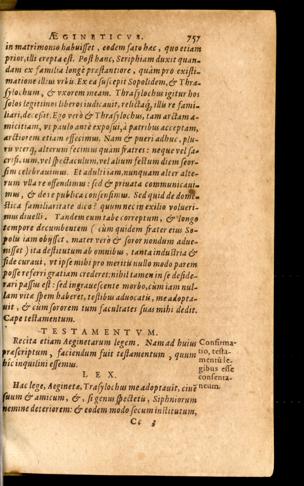 ÆGINETICVS. 757
in matrimonio habuisset, eodem fato hæc, quo etiam
prior, illi erepta est. Post hanc, Seriphiam duxit quan-
dam ex familia longè præstantiore, quàm pro existi-
matione illius vrbis. Ex ea suscepit Sopolidem, & Thra-
sylochum, & vxorem meam. Thrasylochus igitur hos
solos legitimos liberos iudicauit, relictáq; illis re fami-
liari, decessit. Ego verò & Thrasylochus, tam arctam a-
micitiam, vt paulo antè exposui, à patribus acceptam,
arctiorem etiam effecimus. Nam & pueri adhuc, plu-
ris vterq; alterum fecimus quàm fratres: neque vel sa-
crificium, vel spectaculum, vel alium festum diem seor-
sim celebrauimus. Et adulti iam, nunquam alter alte-
rum vlla re offendimus: sed & priuata communicaui-
mus, & de re publica consensimus. Sed quid de dome-
stica familiaritate dico? quum nec in exilio voluerì-
mus diuelli. Tandem eum tabe correptum, & longo
tempore decumbentem (cùm quidem frater eius So-
polis iam obyisset, mater verò & soror nondum adue-
nisset) ita destitutum ab omnibus, tanta industria &
fide curaui, vt ipse mihi pro meritis nullo modo parem
posse referri gratiam crederet: nihil tamen in se deside-
rari passus est: sed ingrauescente morbo, cùm iam nul-
lam vitæ spem haberet, testibus aduocatis, me adopta-
uit, & cum sororem tum facultates suas mihi dedit.
Cape testamentum.
TESTAMENTVM.
Recita etiam Æginetarum legem. Nam ad huius
præscriptum, faciendum fuit testamentum, quum
hîc inquilini essemus.
Confirma-
tio, testa-
mentū le-
gibus esse
consenta-
neum.
LEX.
Hac lege, Æginetæ, Trasylochus me adoptauit, ciuē
suum & amicum, &, si genus spectetis, Siphniorum
nemine deteriorem: & eodem modo secum institutum,
Cc 3